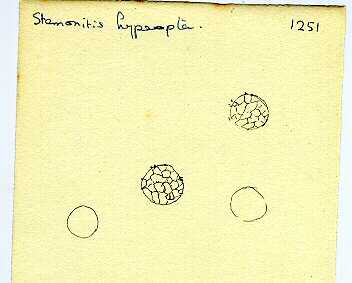 Stemonitis hyperopta. 1251